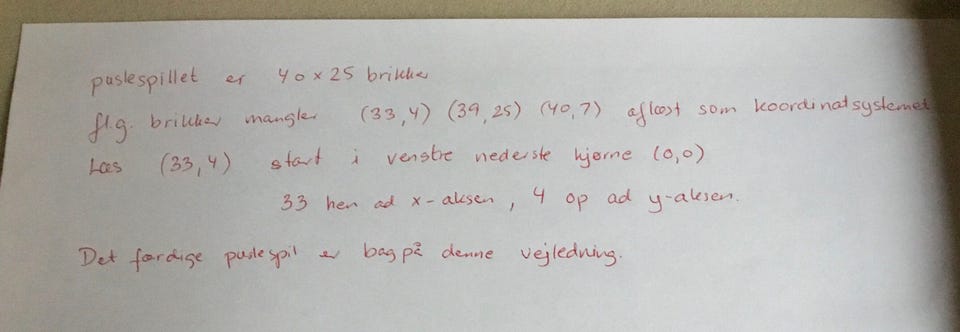 puslespillet er 40 x 25 brikker
flg. brikker mangler (33,4) (39,25) (40,7) aflæst som koordinatsystemet
Læs (33,4) start i venstre nederste hjørne (0,0)
33 hen ad x-aksen, 4 op ad y-aksen.
Det færdige puslespil er bag på denne vejledning.